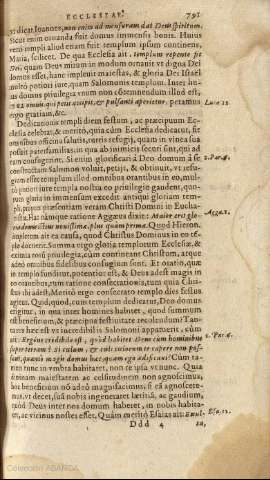 ECCLESIAE. 791
vt dicat Ioannes, non enim ad mensuram dat Deus spiritum.
Sicut enim omnibus fuit domus immensis bonis. Huius
verò templi aliud etiam fuit templum ipsum continens,
Maria, scilicet. De qua Ecclesia ait: templum repente fit
Dei, quam Deus mirum in modum ornauit vt digna Dei
domus esset, hanc impleuit maiestas, & gloria Dei Israel
multò potiori iure, quam Salomonis templum. Inter hu-
ius domus priuilegia vnum non cōtemnendum illud est,
in ea omnis, qui petit accipit, & pulsanti aperietur. petamus Lucæ 11.
ergo gratiam, &c.
Dedicationis templi diem festum, ac præcipuum Ec-
clesia celebrat, & meritò, quia cùm Ecclesia dedicatur, fit
omnibus officina salutis, ortus refugij, quam in vinea sua
posuit paterfamilias, in qua ab inimicis securi sint, qui ad
eam confugerint. Si enim glorificari à Deo domum à se 2. Par. 6.
constructam Salomon voluit, petijt, & obtinuit, vt refu-
gium esset templum illud omnibus orantibus in eo, mul-
tò potiori iure templa nostra eo priuilegio gaudent, quo-
rum gloria in immensum excedit antiqui gloriam tem-
pli, propter præsentiam veram Christi Domini in Eucha-
ristia. Hac namque ratione Aggæus dixit: Maior erit glo- Aggæ. 2.
ria domus illius nouissimæ, plus quàm primæ. Quod Hieron.
impletum ait ea causa, quod Christus Dominus in eo te-
plo docuerit. Summa ergo gloria templorum Ecclesiæ, &
eximia nostri priuilegia, cùm contineant Christum, atque
adeo omnibus fidelibus confugium sint. Et oratio, quæ
in templo funditur, potentior est, & Deus adest magis in
eo orantibus, tum ratione consecrationis, tum quia Chri-
stus ibi adest. Meritò ergo consecrato templo dies festus
agitur. Quid, quod, cum templum dedicatur, Deo domus
erigitur, in qua inter homines habitet, quod summum
est beneficium, & præcipua festiuitate recolendum? Tan-
tum hoc est vt incredibile Salomoni apparuerit, cùm
ait: Ergóne credibile est, quòd habitet Deus cum hominibus 2. Par. 6.
super terram? Si cœlum, & cœli cœlorum te capere non pos-
sunt, quanto magis domus hæc, quam ego ædificaui? Cùm ta-
men tunc in vmbra habitaret, non re ipsa veniret. Quia
diuinam maiestatem ac celsitudinem non agnoscimus,
hoc beneficium nō adeò magnifacimus, si eā agnoscere-
mus, vt decet, sua nobis ingeneraret lætitiam, ac gaudium,
quòd Deus inter nos domum haberet, in nobis habita-
ret, ac vicinus nostes esset. Quàm meritò Esaias ait: Exul- Esa. 12.
Ddd 4 ta,
Colección ABANDA